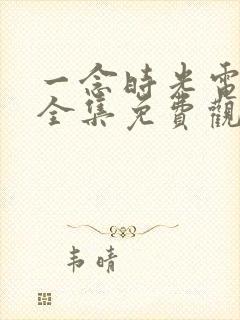 一念時光電
全集免費觀
韦晴